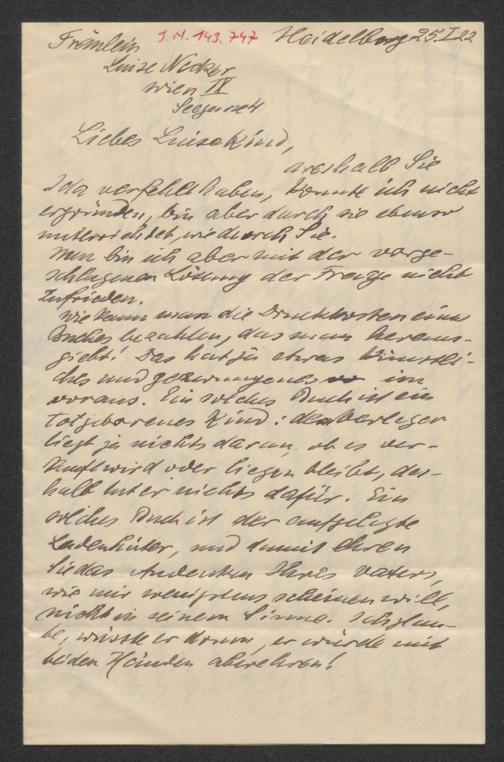 Fräulein J.N. 143.747 Heidelberg 25.I.22
Luise Necker
Wien IV
Liebes Luisekind,
weshalb Sie
Ida verfehlt haben, konnte ich nicht
ergründen, bin aber durch sie ebenso
unterrichtet, wie durch Sie.
Nun bin ich aber mit der vorge-
schlagenen Lösung der Frage nicht
zufrieden.
Wie kann man die Druckkosten eines
Buches bezahlen, das man heraus-
giebt! Das hat ja etwas Künstli-
ches und gezwungenes im
voraus. Ein solches Buch ist ein
totgeborenes Kind: dem Verleger
liegt ja nichts daran, ob es ver-
kauft wird oder liegen bleibt, des-
halb tut er nichts dafür. Ein
solches Buch ist der aufgelegte
Ladenhüter, und damit ehren
Sie das Andenken Ihres Vaters,
wie mir wenigstens scheinen will,
nicht in seinem Sinne. Ich glau-
be, wüsste er darum, er würde mit
beiden Händen abwehren!